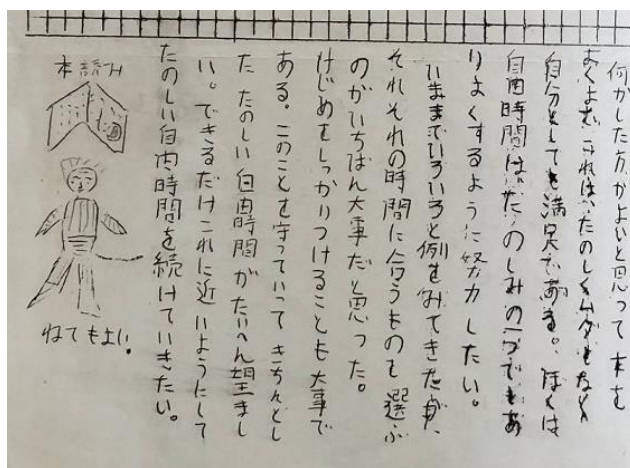 何かした方がよいと思って本を
よくよむ。これは、たのしくムダもなく
自分としても満足である。ぼくは
自由時間は、たのしみの一つでもあ
りよくするように努力したい。
いままでいろいろと例をみてきたが、
それそれの時間に合うものを選ぶ
のがいちばん大事だと思った。
けじめをしっかりつけることも大事で
ある。このことを守っていってきちんとし
た たのしい自由時間がたいへん望まし
い。できるだけこれに近いようにして
たのしい自由時間を続けていきたい。
本読み
ねてもよい。